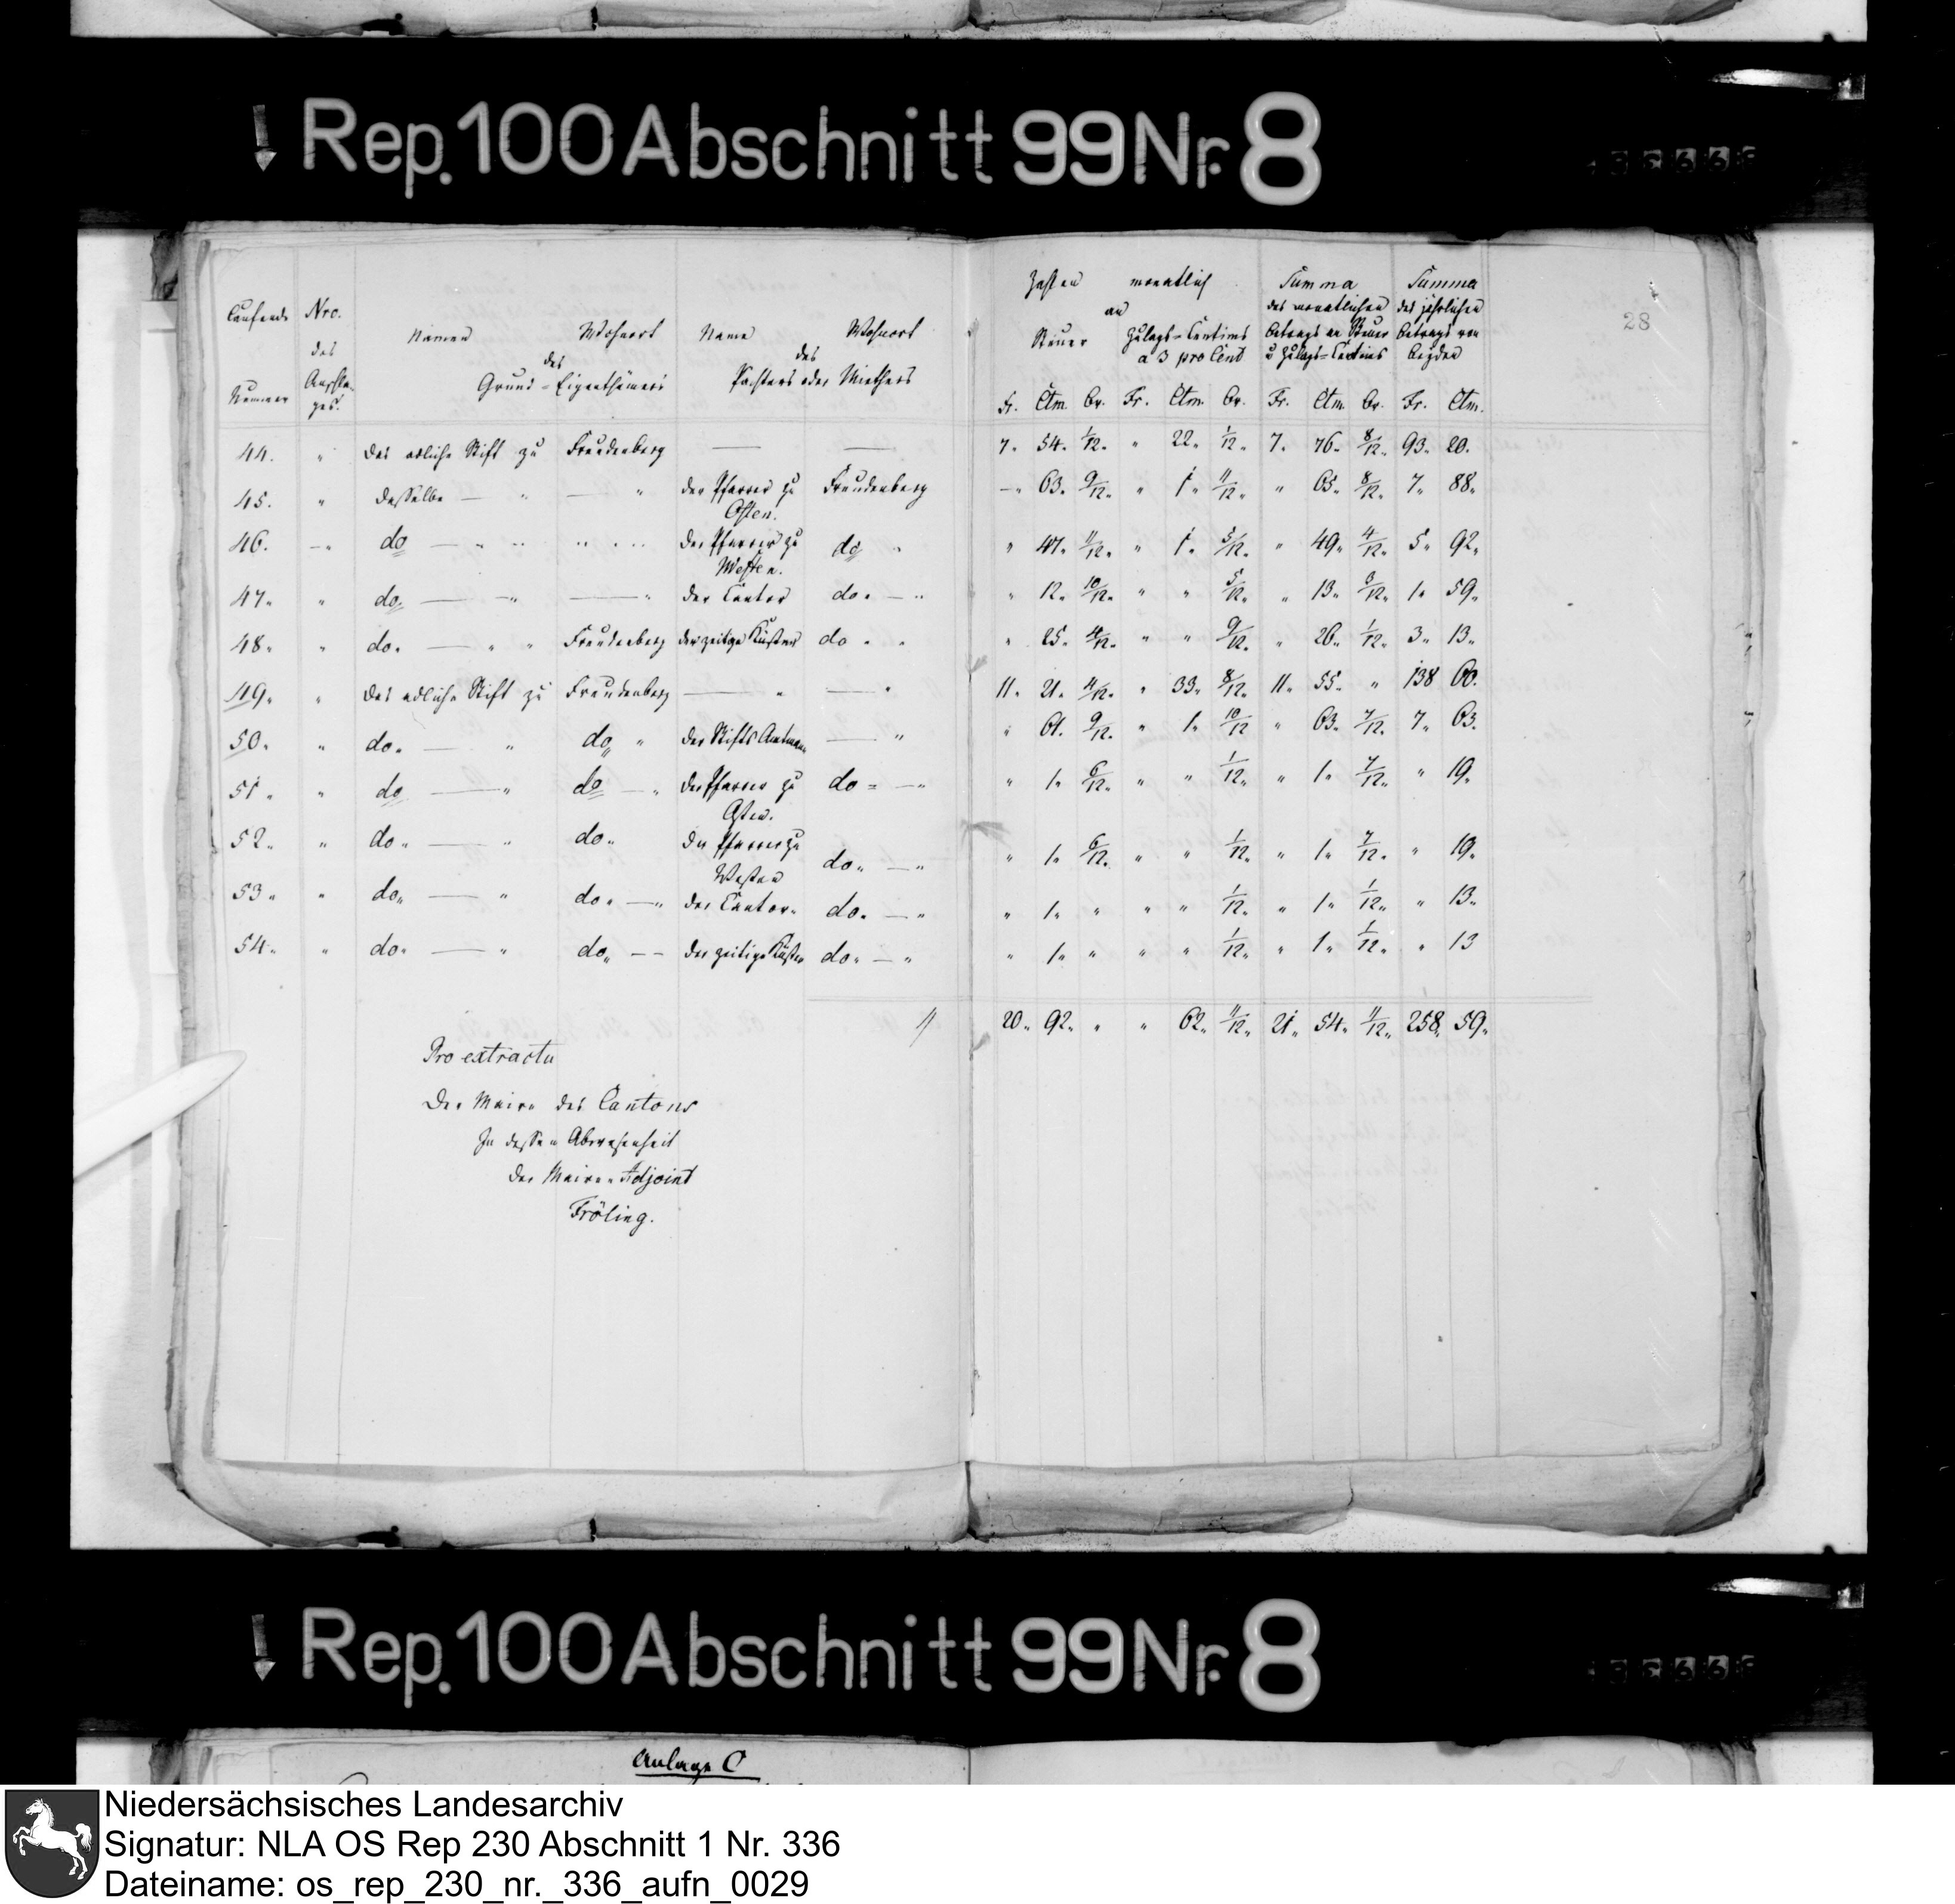 Rep. 100 Abschnitt 99 Nr. 8
28
Zahlen monatlich Summa Summa
an des monatlichen des jährlichen
Laufende Nro. Namen Wohnort Name Wohnort Steuer Zulags-Centims Betrags an Steuer Betrags von
des des des a 3 pro Cent u Zulags-Centims beyden
Nummer Anschla-ges. Grund-Eigenthümers Pächters oder Miethers
Fr. Ctm. Br. Fr. Ctm. Br. Fr. Ctm. Br. Fr. Ctm.
44. " Das adliche Stift zu Freudenberg — — 7. 54. 1/12. " 22. 1/12. 7. 76. 8/12. 93. 20.
45. " dasselbe — " — " der Pfarrer zu Osten. Freudenberg —" 63. 9/12. " 1. 11/12. " 65. 8/12. 7. 88.
46. — do — " " der Pfarrer zu Westen. do " " 47. 11/12. " 1. 5/12. " 49. 4/12. 5. 92.
47. " do. — " — " der Cantor do. — " " 12. 10/12. " " 5/12. " 13. 3/12. 1. 59.
48. " do. — " " Freudenberg der zeitige Küster do " " " 25. 4/12. " " 9/12. " 26. 1/12. 3. 13.
49. " Das adliche Stift zu Freudenberg — " — " 11. 21. 4/12. " 33. 8/12. 11. 55. " 138 60.
50. " do. — " do " der Stifts Amtmann — " " 61. 9/12. " 1. 10/12 " 63. 7/12. 7. 63.
51. " do — " do — " der Pfarrer zu Osten. do — " " 1. 6/12. " " 1/12. " 1. 7/12. " 19.
52. " do. — " do. der Pfarrer zu Westen do. — " " 1. 6/12. " " 1/12. " 1. 7/12. " 19.
53. " do. — " do. — " der Cantor. do. — " " 1. " " " 1/12. " 1. 1/12. " 13.
54. " do. — " do. — — der zeitige Küster do. — " " 1. " " " 1/12. " 1. 1/12. " 13
20. 92. " " 62. 11/12. 21. 54. 11/12. 258. 59.
Pro extractu
Der Maire des Cantons
In dessen Abwesenheit
der Maire-Adjoint
Fröling.
Rep. 100 Abschnitt 99 Nr. 8
Anlage C
Niedersächsisches Landesarchiv
Signatur: NLA OS Rep 230 Abschnitt 1 Nr. 336
Dateiname: os_rep_230_nr._336_aufn_0029